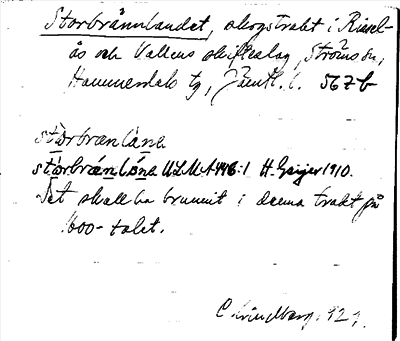 Storbrännlandet, skogstrakt i Risel-
ås och Vallens skifteslag, Ströms sn,
Hammerdals tg, Jämtl. l. 567b
stòrbrænlánẹ
stòrbrænlóna ULMA 446:1 H. Geijer 1910.
Det skall ha brunnit i denna trakt på
1600-talet.
C. Lindberg. 192